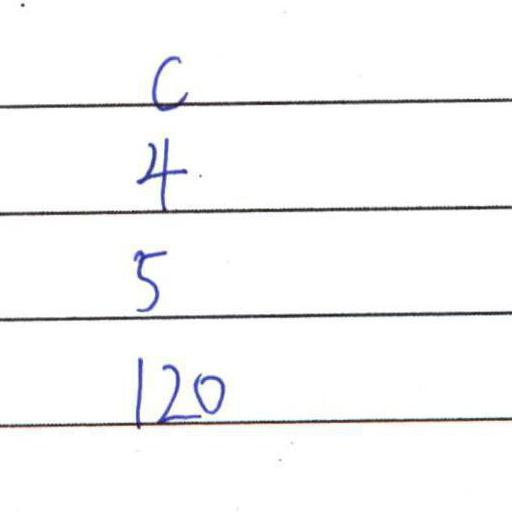 C
4
5
120